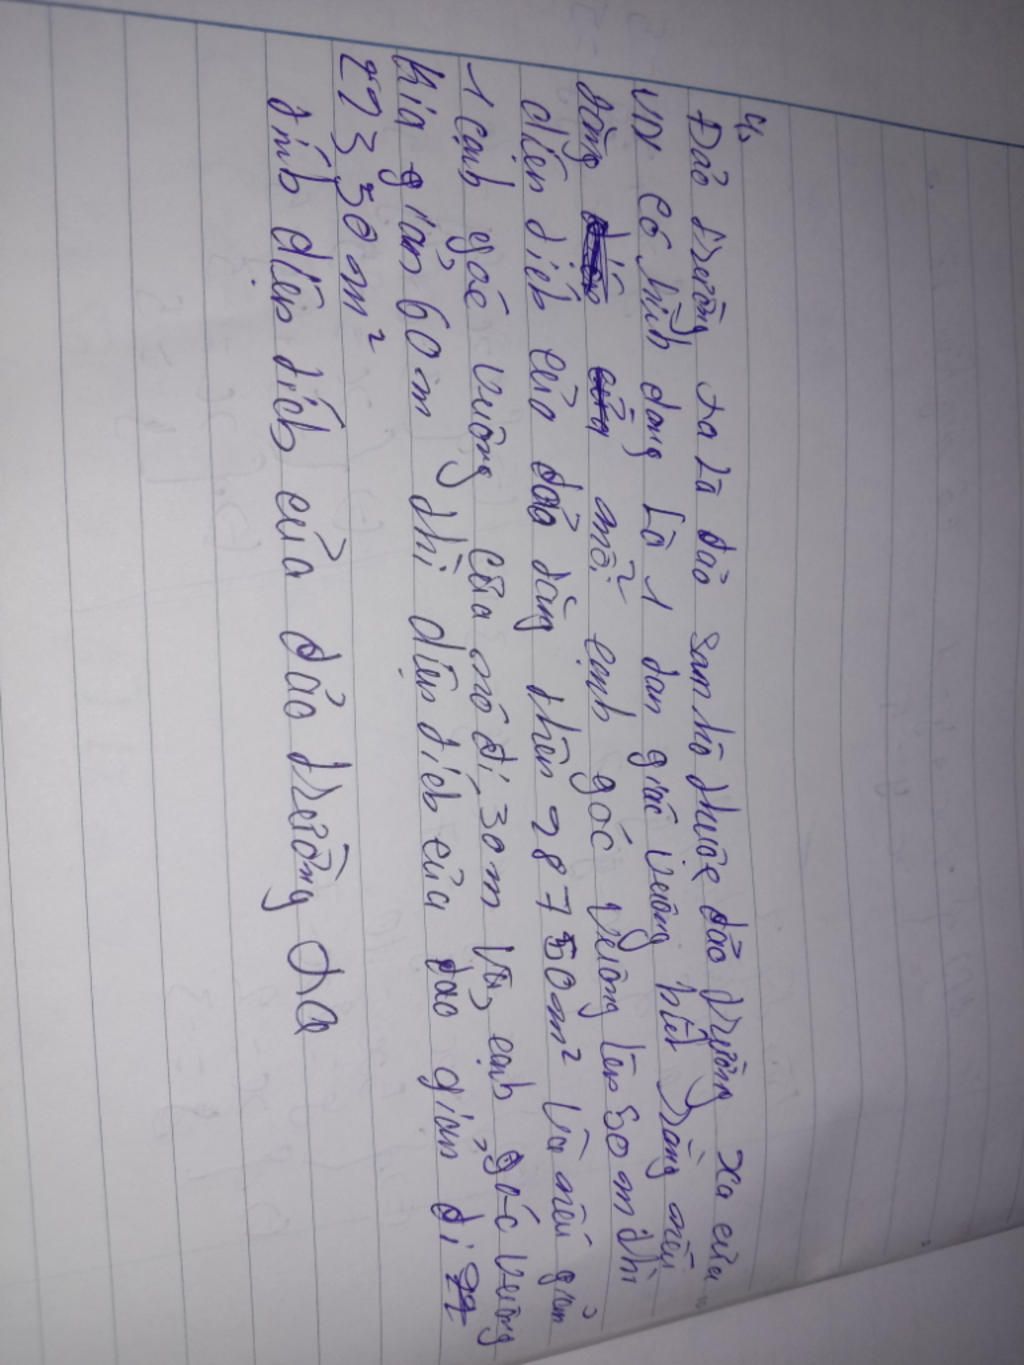 4,
Đảo trường xa là đảo san hô thuộc đảo trường xa của
VN có hình dạng là 1 dan giác vuông biết rằng nếu
tăng mỗi cạnh góc vuông lên 50 m thì
diện tích của đảo tăng thên 28750m² và nếu giảm
1 cạnh góc vuông của nó đi 30m và cạnh góc vuông
kia giản 60m thì diện tích của đảo giản đi
22350m²
tính diện tích của đảo trường xa